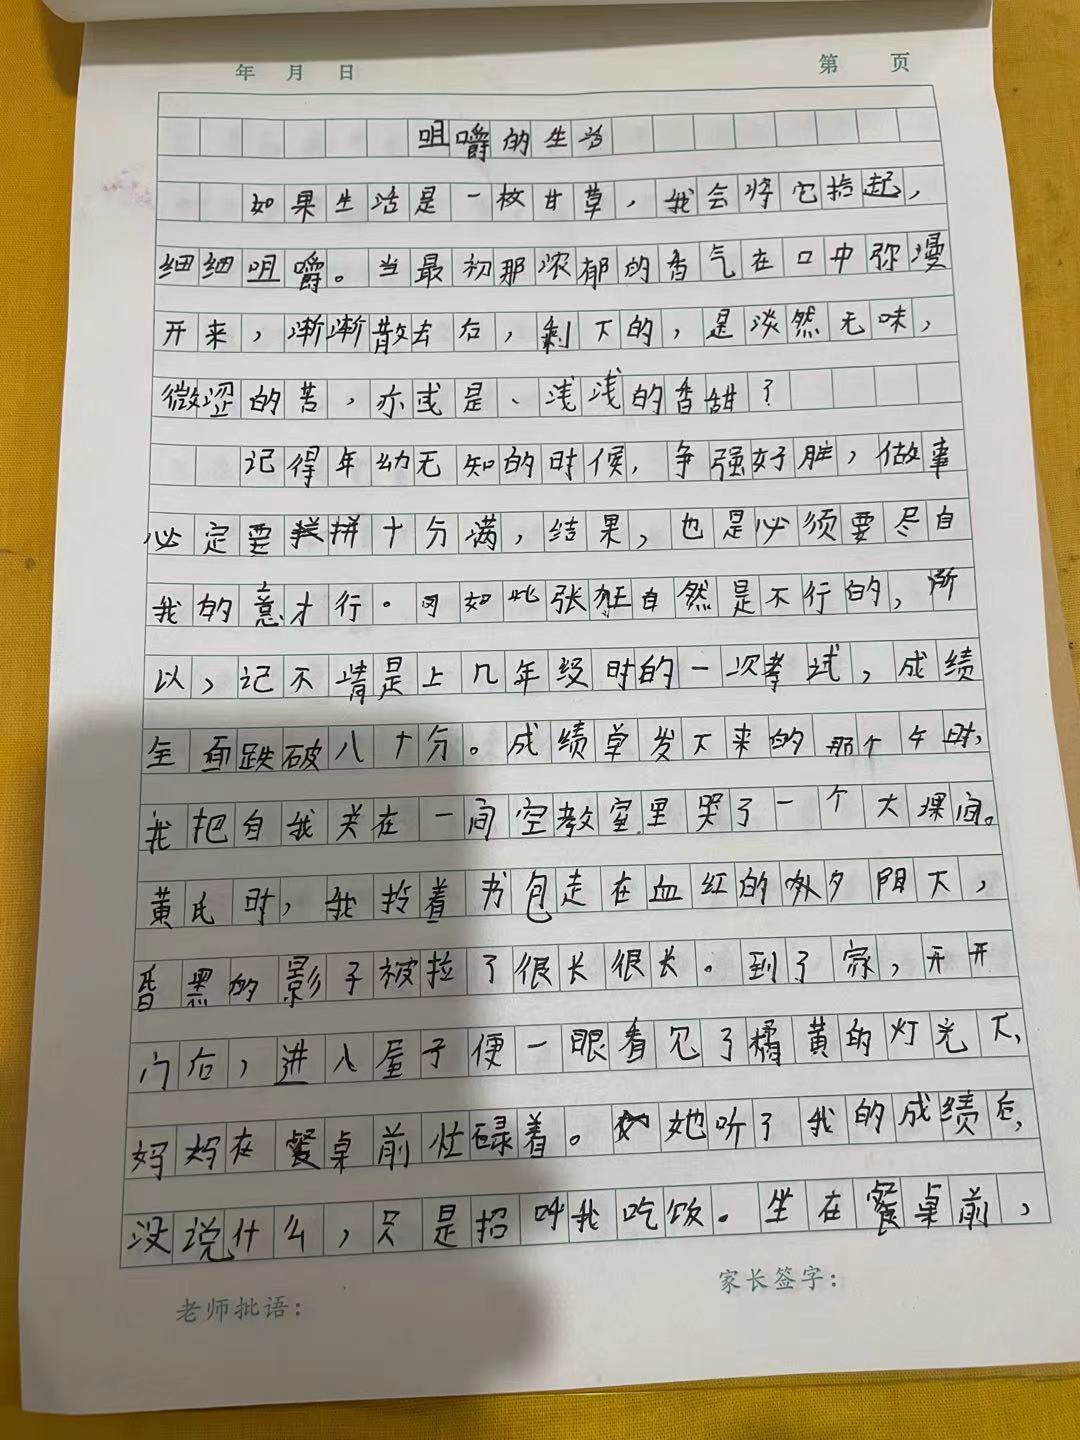 年 月 日 第 页
咀嚼的生当
如果生活是一枚甘草，我会将它拾起，
细细咀嚼。当最初那浓郁的香气在口中弥漫
开来，渐渐散去后，剩下的，是淡然无味，
微涩的苦，亦或是、浅浅的香甜？
记得年幼无知的时候，争强好胜，做事
必定要拼十分满，结果，也是必须要尽自
我的意才行。可如此张狂自然是不行的，所
以，记不清是上几年级时的一次考试，成绩
全面跌破八十分。成绩单发下来的那个午时，
我把自我关在一间空教室里哭了一个大课间。
黄昏时，我拎着书包走在血红的夕阳下，
昏黑的影子被拉了很长很长。到了家，开开
门后，进入屋子便一眼看见了橘黄的灯光下，
妈妈在餐桌前忙碌着。她听了我的成绩后，
没说什么，只是招呼我吃饭。坐在餐桌前，
家长签字：
老师批语：